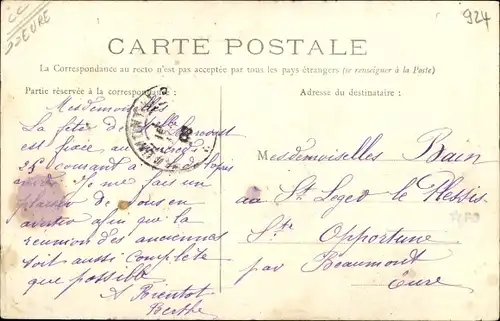 CC
33 EURE
924
CARTE POSTALE
La Correspondance au recto n'est pas acceptée par tous les pays étrangers (se renseigner à la Poste)
Partie réservée à la correspondance:
Adresse du destinataire:
Mesdemoiselles
La fête d'
est fixée au
25 courant à
Je me fais un
plaisir de vous en
avertir afin que la
reunion des anciennes
soit aussi complète
que possible
A Bientot
Berthe
Mesdemoiselles Bain
au St Leger le Plessis
Ste Opportune
par Beaumont
Eure